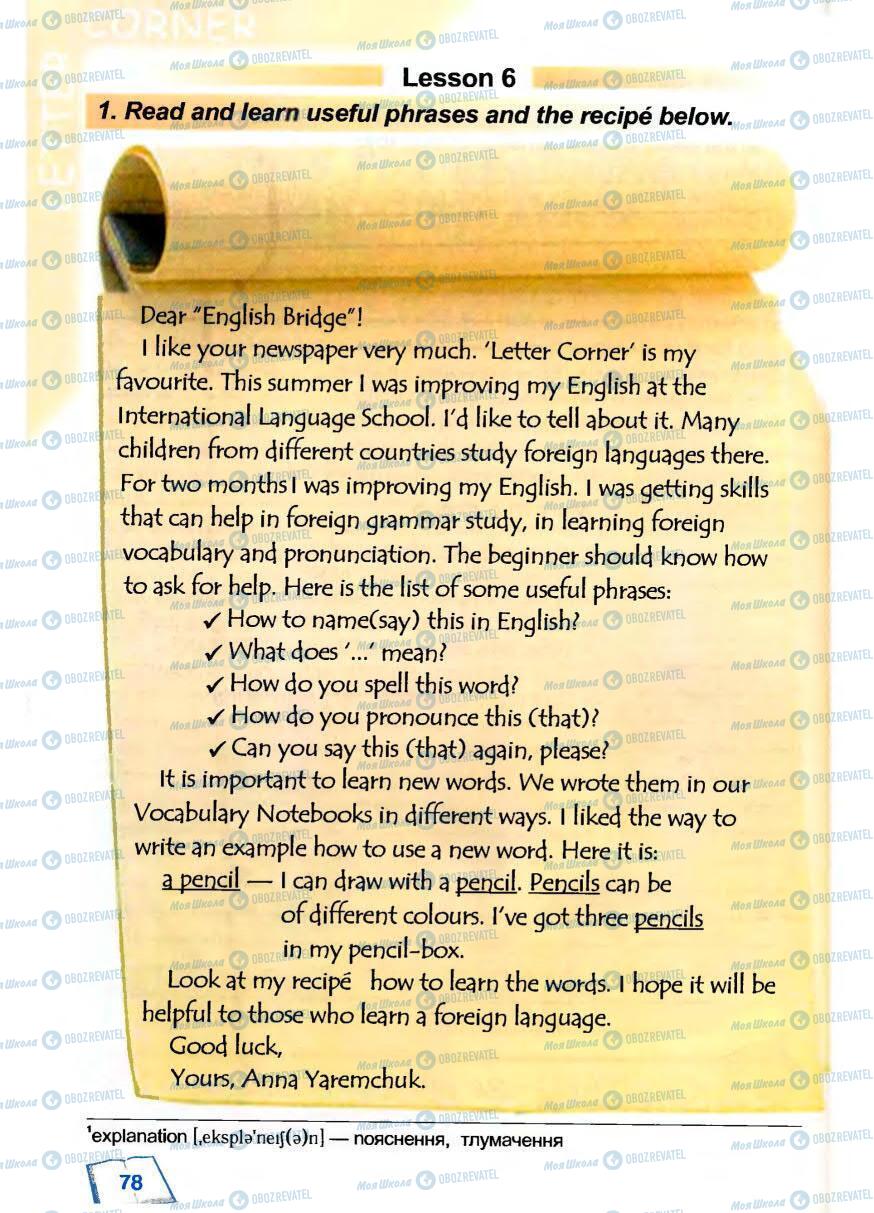 LETTER CORNER
Lesson 6
1. Read and learn useful phrases and the recipé below.
Dear "English Bridge"!
I like your newspaper very much. 'Letter Corner' is my
favourite. This summer I was improving my English at the
International Language School. I'd like to tell about it. Many
children from different countries study foreign languages there.
For two months I was improving my English. I was getting skills
that can help in foreign grammar study, in learning foreign
vocabulary and pronunciation. The beginner should know how
to ask for help. Here is the list of some useful phrases:
✓ How to name(say) this in English?
✓ What does '...' mean?
✓ How do you spell this word?
✓ How do you pronounce this (that)?
✓ Can you say this (that) again, please?
It is important to learn new words. We wrote them in our
Vocabulary Notebooks in different ways. I liked the way to
write an example how to use a new word. Here it is:
a pencil — I can draw with a pencil. Pencils can be
of different colours. I've got three pencils
in my pencil-box.
Look at my recipé how to learn the words. I hope it will be
helpful to those who learn a foreign language.
Good luck,
Yours, Anna Yaremchuk.
¹explanation [ˌekspləˈneɪʃ(ə)n] — пояснення, тлумачення
78
МояШкола OBOZREVATEL